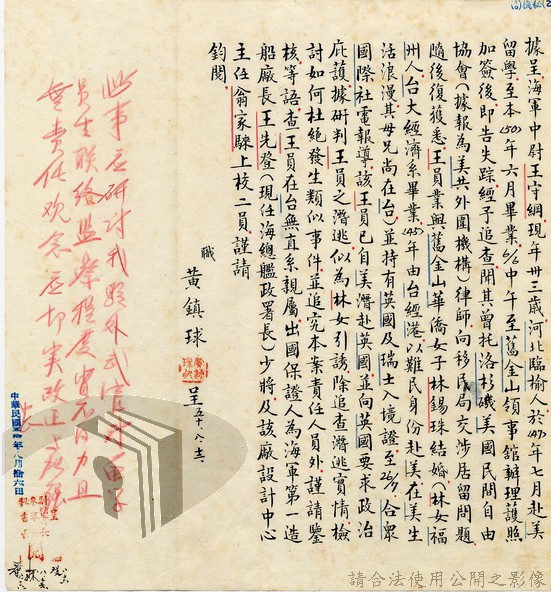 據呈海軍中尉王守綱現年卅三歲河北臨榆人於(47)年七月赴美
留學至本(50)年六月畢業6/6中午至舊金山領事館辦理護照
加簽後即告失踪經予追查聞其曾托洛杉磯美國民間自由
協會(據報為美共外圍機構)律師向移民局交涉居留問題
隨後復獲悉王員業與舊金山華僑女子林錫珠結婚(林女福
州人台大經濟系畢業(45)年由台經港以難民身份赴美在美生
活浪漫其母兄尚在台)並持有英國及瑞士入境證至26/7合眾
國際社電報導該王員已自美潛赴英國並向英國要求政治
庇護據研判王員之潛逃似為林女引誘除追查潛逃實情檢
討如何杜絕發生類似事件並追究本案責任人員外謹請鑒
核等語查王員在台無直系親屬出國保證人為海軍第一造
船廠長王先登(現任海總艦政署長)少將及該廠設計中心
主任翁家騋上校二員謹請
鈞閱
職 黃鎮球 呈 五十、八、
此事應研討我駐外武官對留學
員生聯絡監察
無責任观念應切实改正
中華民國 年八月拾六日
請合法使用公開之影像